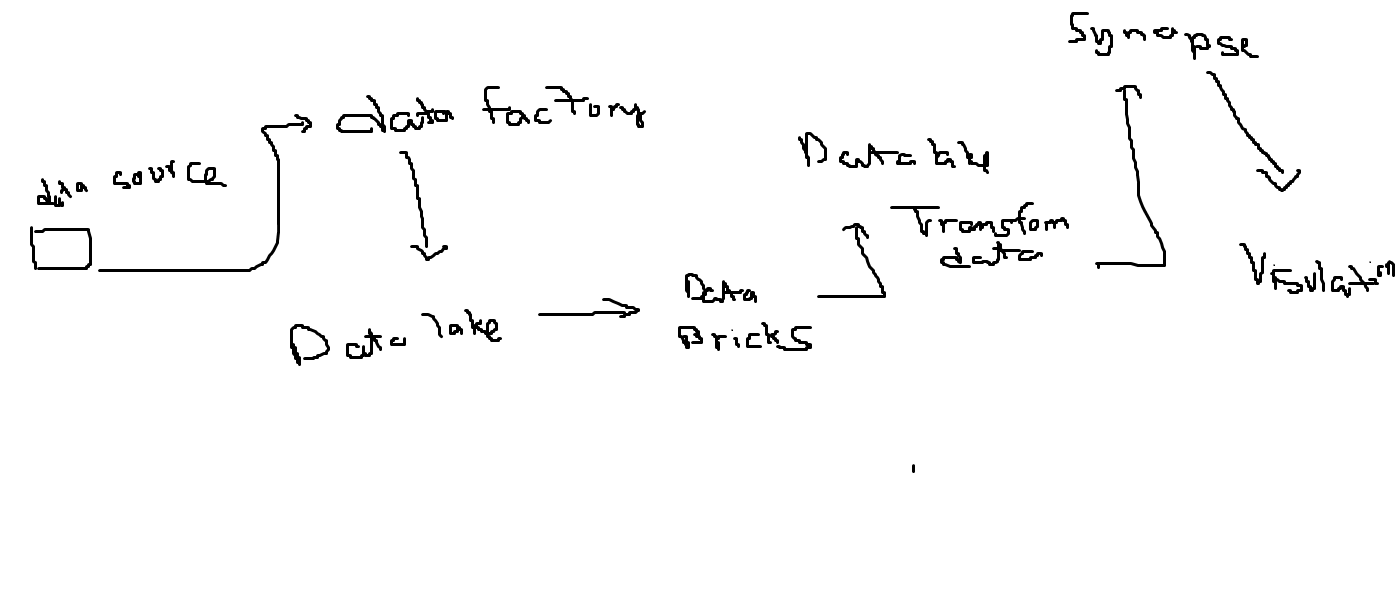 data source
data factory
Data lake
Data
Bricks
Data lake
Transfom
data
Synapse